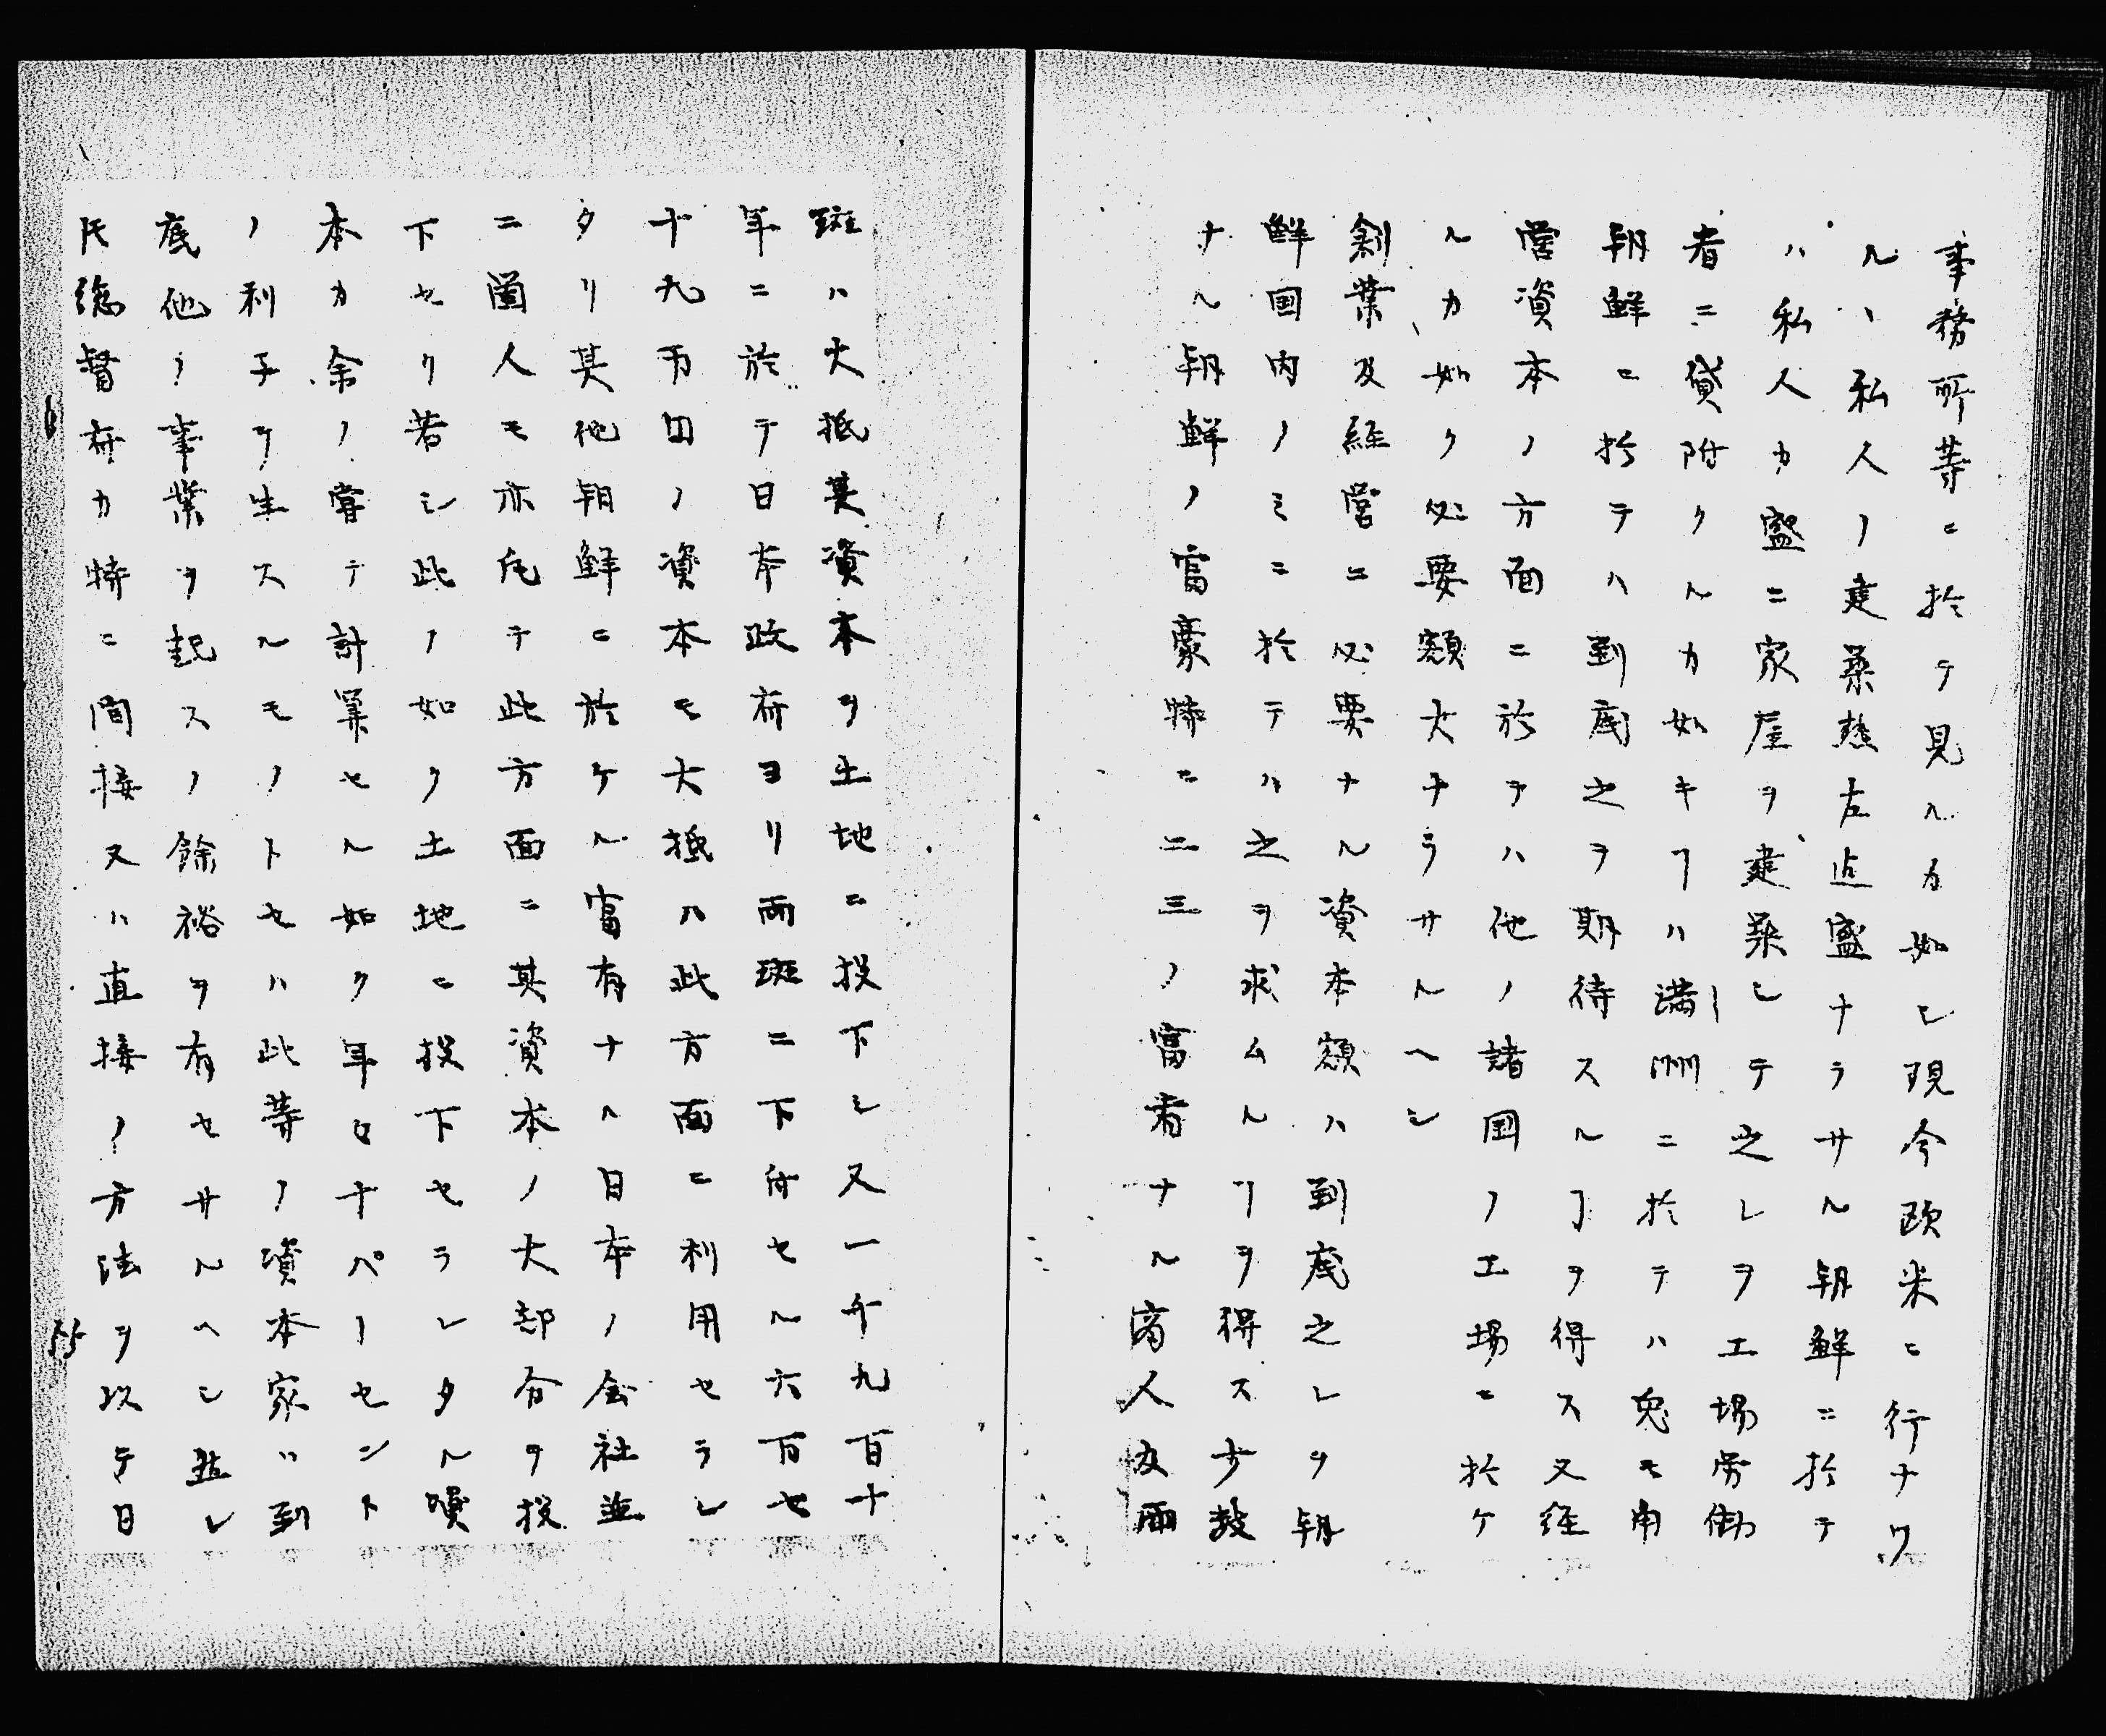 事務所等ニ於テ見ルカ如シ現今欧米ニ行ナワ
ルヽ私人ノ建築熱左迄盛ナラサル朝鮮ニ於テ
ハ私人カ盛ニ家屋ヲ建築シテ之レヲ工場労働
者ニ貸附クルカ如キヿハ満洲ニ於テハ兎モ角
朝鮮ニ於テハ到底之ヲ期待スルヿヲ得ス又経
営資本ノ方面ニ於テハ他ノ諸国ノ工場ニ於ケ
ルカ如ク必要額大ナラサルヘシ
創業及経営ニ必要ナル資本額ハ到底之レヲ朝
鮮国内ノミニ於テハ之ヲ求ムルヿヲ得ス少数
ナル朝鮮ノ富豪特ニ二三ノ富者ナル商人及両
班ハ大抵其資本ヲ土地ニ投下シ又一千九百十
年ニ於テ日本政府ヨリ両班ニ下付セル六百七
十九万円ノ資本モ大抵ハ此方面ニ利用セラレ
タリ其他朝鮮ニ於ケル富有ナル日本ノ会社並
ニ箇人モ亦凡テ此方面ニ其資本ノ大部分ヲ投
下セリ若シ此ノ如ク土地ニ投下セラレタル資
本カ余ノ嘗テ計算セル如ク年々十パーセント
ノ利子ヲ生スルモノトセハ此等ノ資本家ハ到
底他ノ事業ヲ起スノ餘裕ヲ有セサルヘシ然レ
𪜈総督府カ特ニ間接又ハ直接ノ方法ヲ以テ日